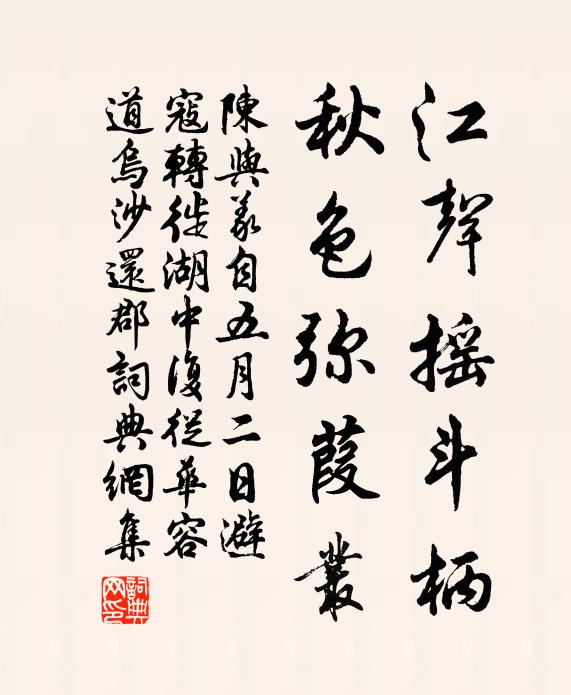 江聲摇斗柄
秋色弥葭叢
陳與義自五月二日避
寇轉徙湖中復從華容
道烏沙還郡詞典網集
詞典网印